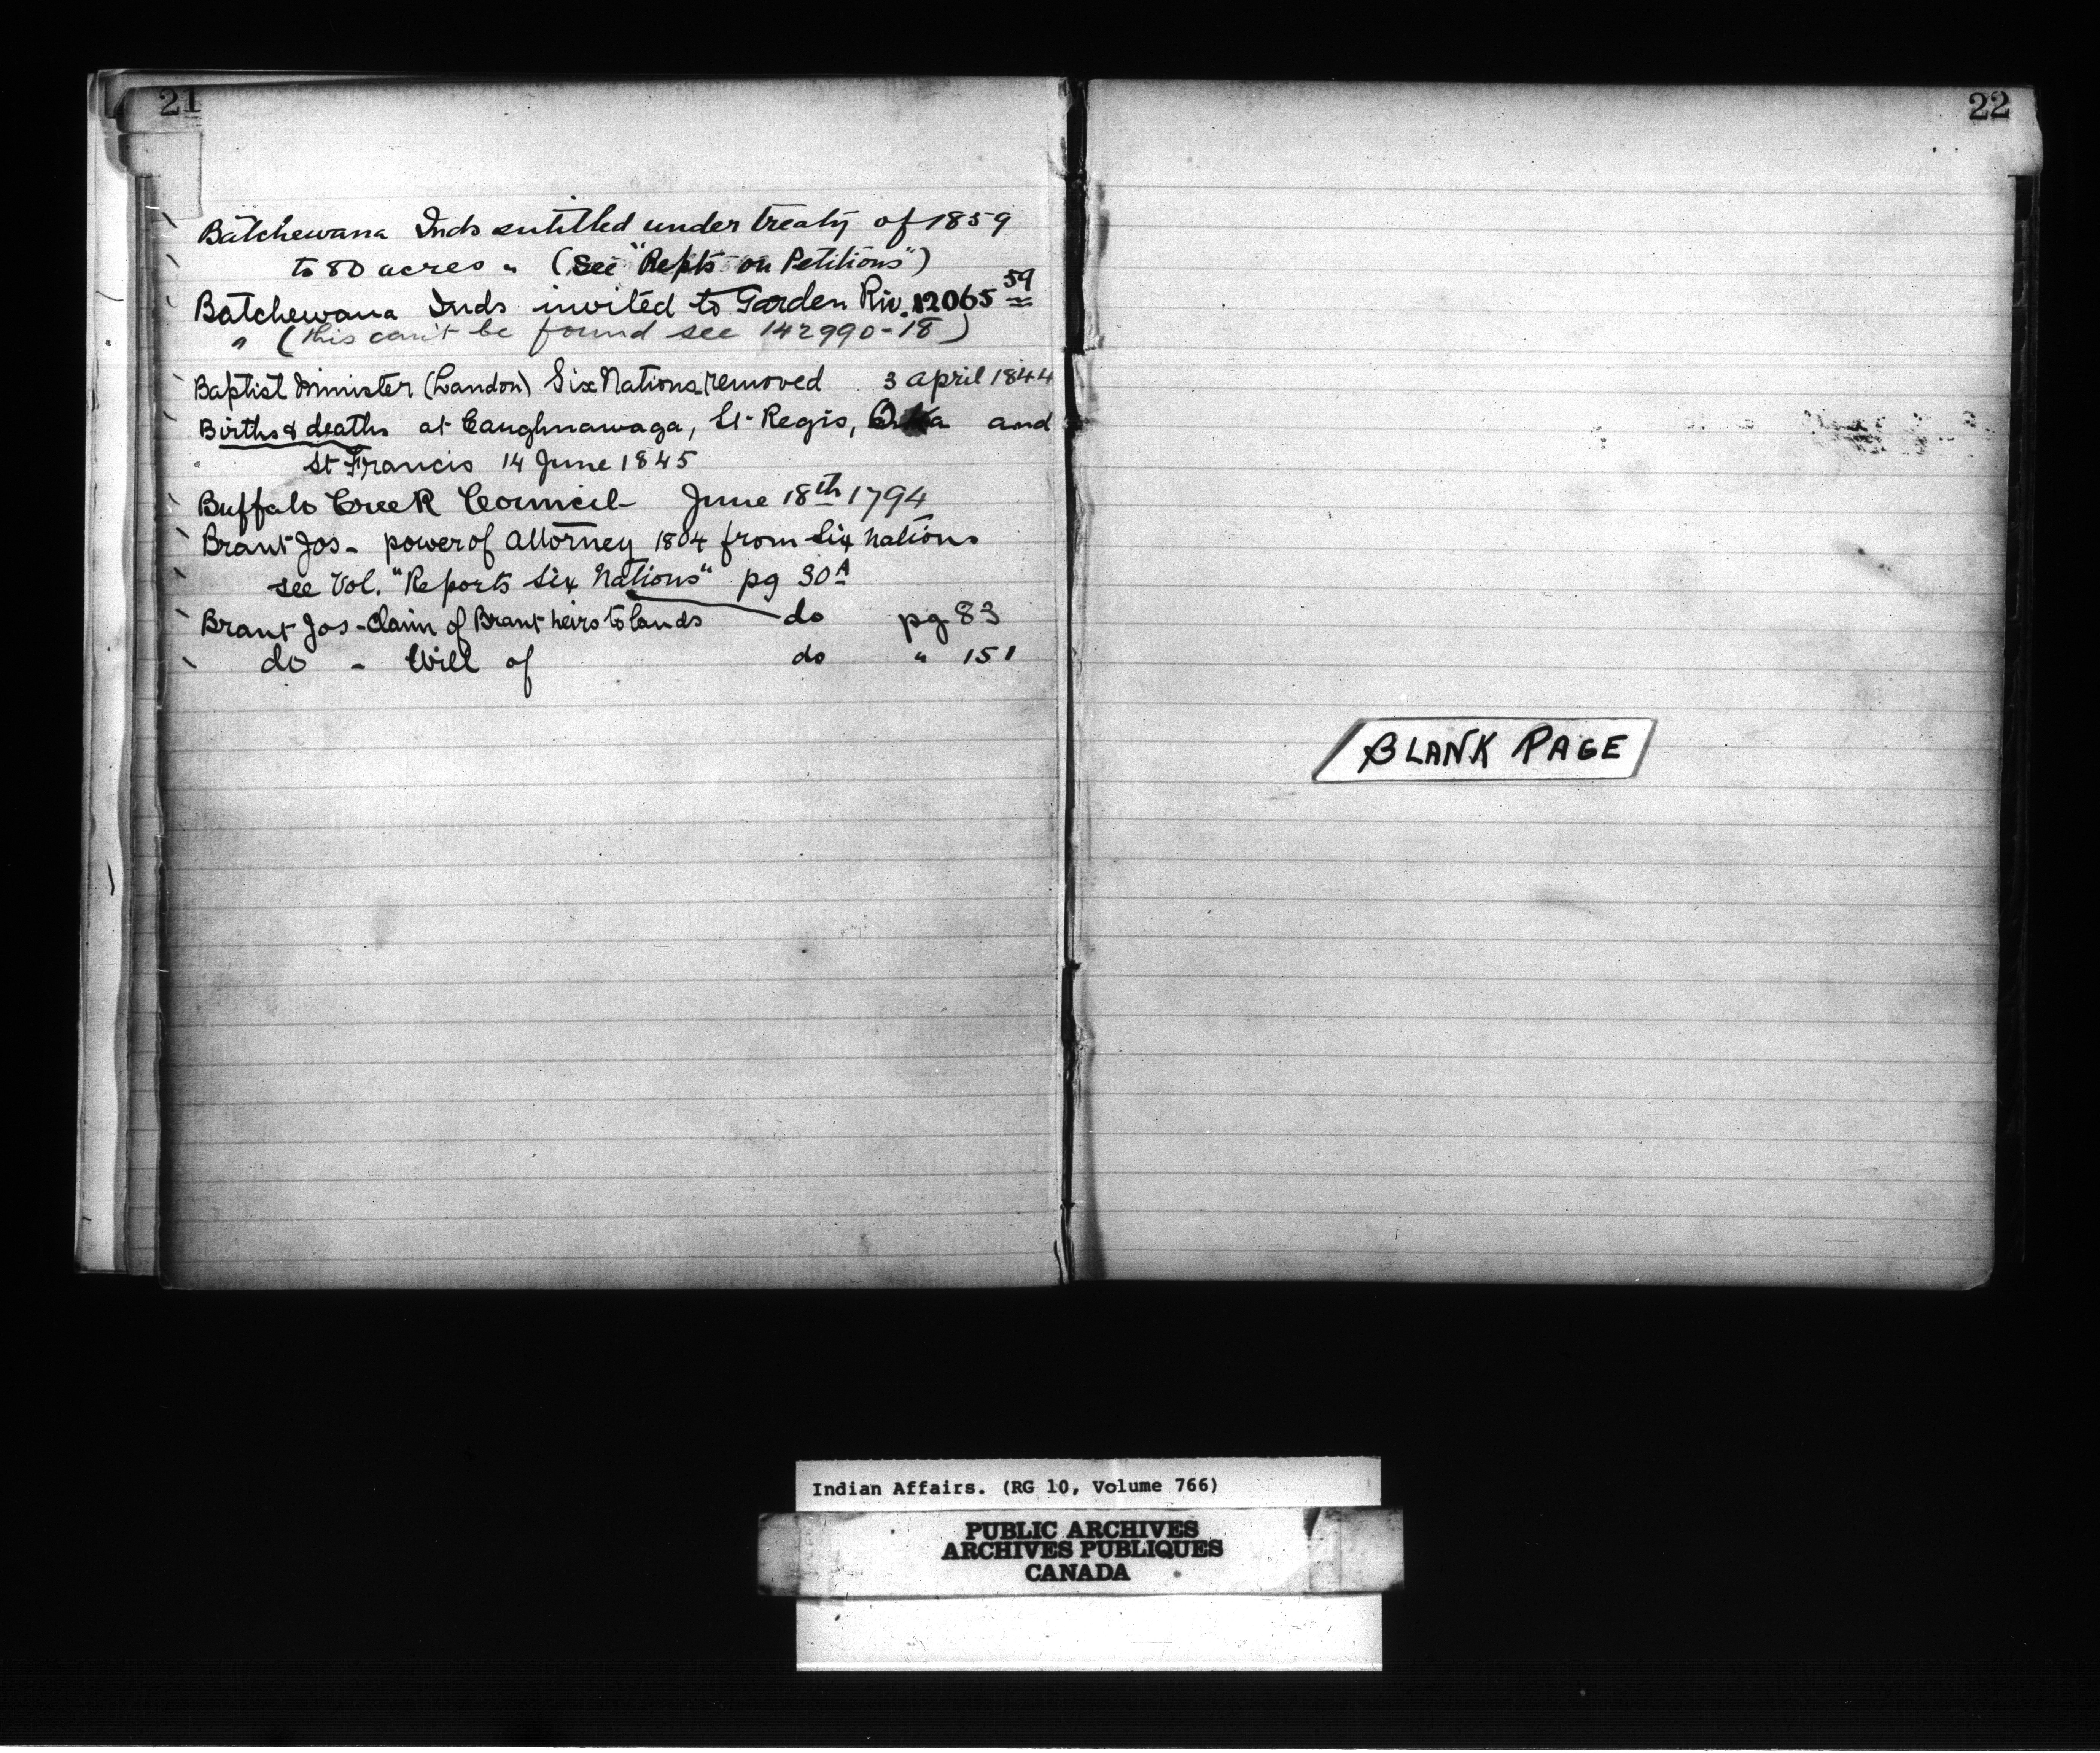 21
Batchewana Inds entitled under treaty of 1859
to 80 acres " (see "Repts on Petitions")
Batchewana Inds invited to Garden Riv. 12065 59
" (this can't be found see 142990-18)
Baptist Minister (Landon) Six Nations removed 3 April 1844
Births & deaths at Caughnawaga, St. Regis, Oka and
St Francis 14 June 1845
Buffalo Creek Council - June 18th 1794
Brant Jos - power of Attorney 1804 from Six Nations
see Vol. "Reports Six Nations" pg 30A
Brant Jos - Claim of Brant heirs to lands do pg 83
do - Will of do " 151
22
BLANK PAGE
Indian Affairs. (RG 10, Volume 766)
PUBLIC ARCHIVES
ARCHIVES PUBLIQUES
CANADA